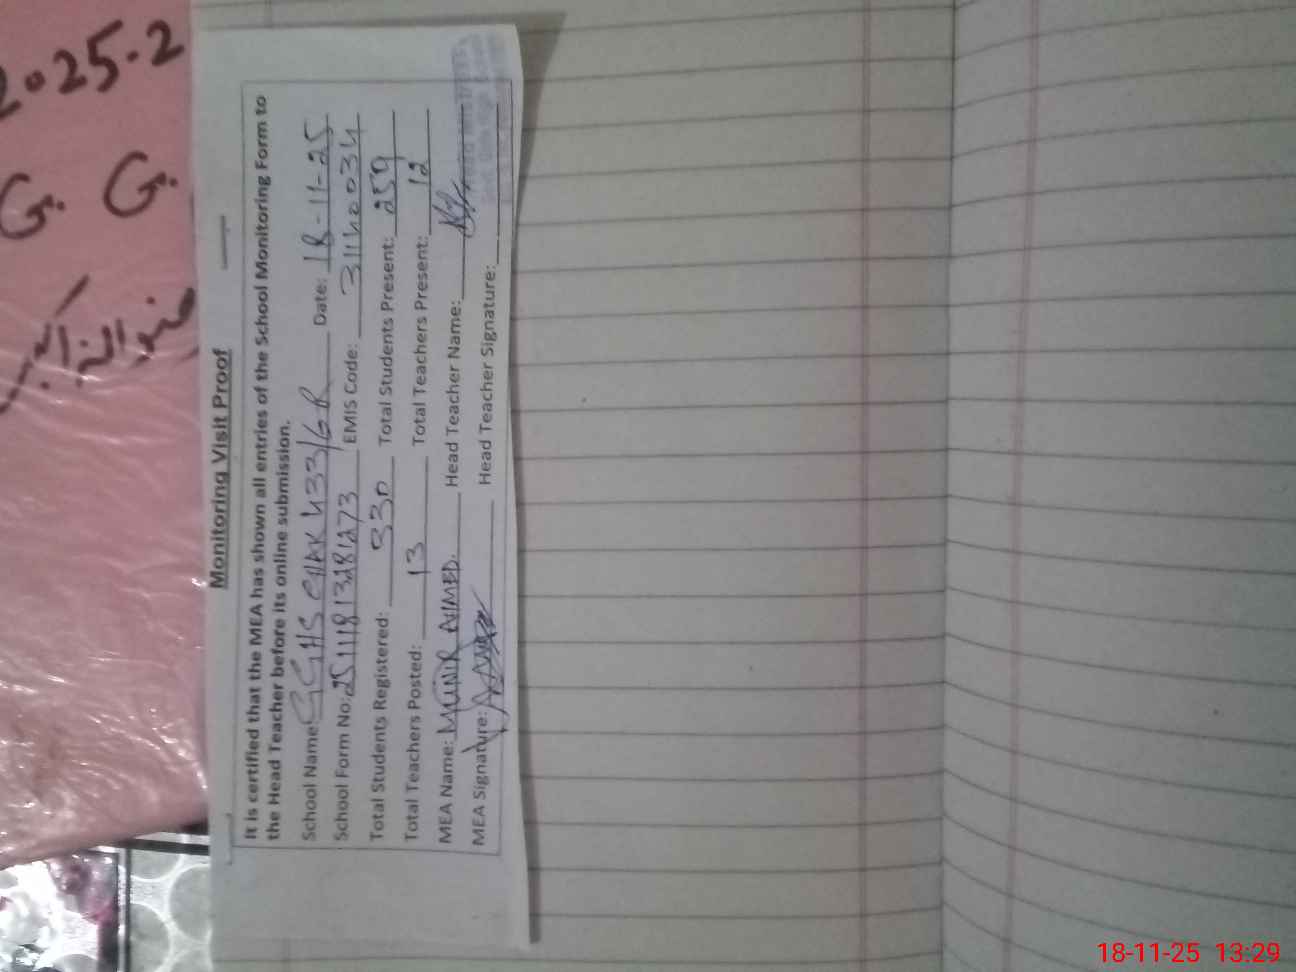 Monitoring Visit Proof
It is certified that the MEA has shown all entries of the School Monitoring Form to
the Head Teacher before its online submission.
School Name: GGHS CHAK 433/6R Date: 18-11-25
School Form No: 25111813281273 EMIS Code: 31140034
Total Students Registered: 330 Total Students Present: 259
Total Teachers Posted: 13 Total Teachers Present: 12
MEA Name: MUNIR AHMED. Head Teacher Name:
MEA Signature: Head Teacher Signature:
2025-2
G. G.
18-11-25 13:29